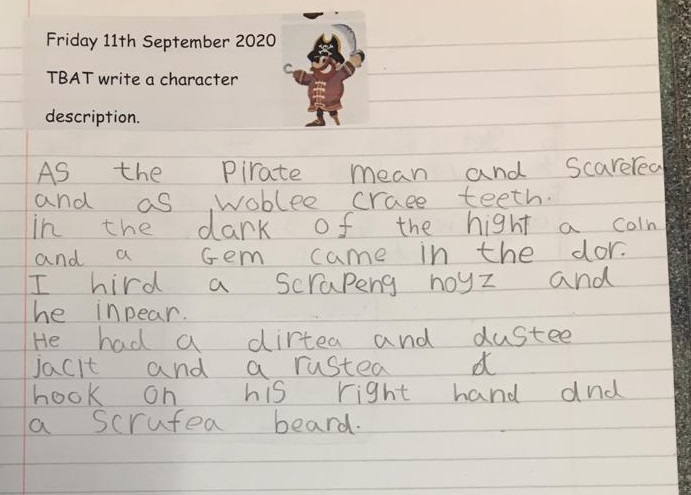 Friday 11th September 2020
TBAT write a character
description.
AS the Pirate mean and Scarerea
and as woblee craee teeth.
in the dark of the night a Coin
and a Gem came in the dor.
I hird a Scrapeng noyz and
he inpear.
He had a dirtea and dustee
jacit and a rustea
hook on his right hand and
a Scrufea beard.